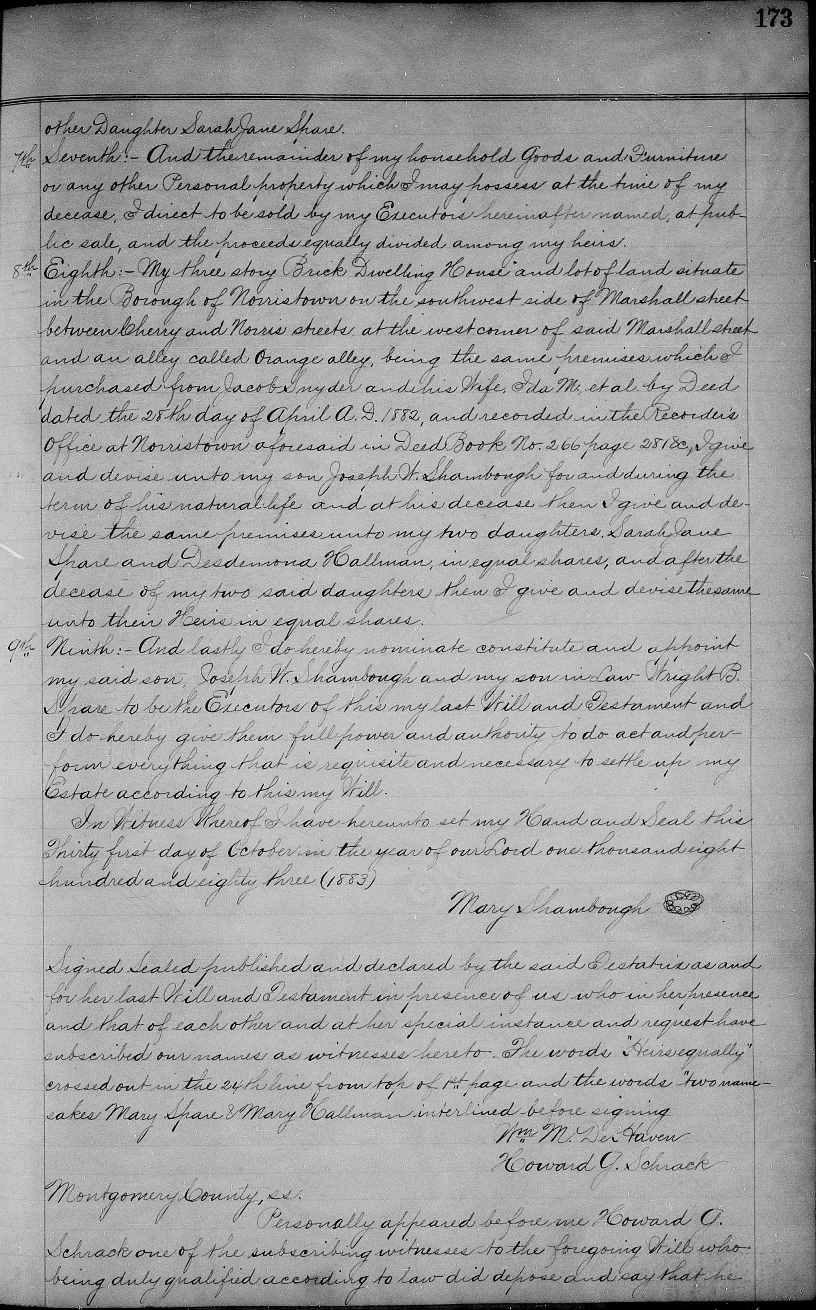 173
other Daughter Sarah Jane Spare.
7th Seventh:- And the remainder of my household Goods and Furniture
or any other Personal property which I may possess at the time of my
decease, I direct to be sold by my Executors hereinafter named, at pub-
lic sale, and the proceeds equally divided among my heirs.
8th Eighth:- My three story Brick Dwelling House and lot of land situate
in the Borough of Norristown on the southwest side of Marshall street
between Cherry and Norris streets at the west corner of said Marshall street
and an alley called Orange alley, being the same premises which I
purchased from Jacob Snyder and his Wife, Ida M., et al by Deed
dated the 28th day of April A.D. 1882, and recorded in the Recorder's
Office at Norristown aforesaid in Deed Book No. 266 page 281 &c, I give
and devise unto my son Joseph W. Shambough for and during the
term of his natural life and at his decease then I give and de-
vise the same premises unto my two daughters, Sarah Jane
Spare and Desdemona Hallman, in equal shares, and after the
decease of my two said daughters then I give and devise the same
unto their Heirs in equal shares.
9th Ninth:- And lastly I do hereby nominate constitute and appoint
my said son, Joseph W. Shambough and my son in Law Wright B.
Spare to be the Executors of this my last Will and Testament and
I do hereby give them full power and authority to do act and per-
form everything that is requisite and necessary to settle up my
Estate according to this my Will.
In Witness Whereof I have hereunto set my Hand and Seal this
Thirty first day of October in the year of our Lord one thousand eight
hundred and eighty three (1883)
Mary Shambough
Signed Sealed published and declared by the said Testatrix as and
for her last Will and Testament in presence of us who in her presence
and that of each other and at her special instance and request have
subscribed our names as witnesses hereto. The words "Heirs equally"
crossed out in the 24th line from top of 1st page and the words "two name-
sakes Mary Spare & Mary Hallman interlined before signing
Wm M. DeHaven
Howard G. Schrack
Montgomery County, ss.
Personally appeared before me Howard G.
Schrack one of the subscribing witnesses to the foregoing Will who
being duly qualified according to law did depose and say that he